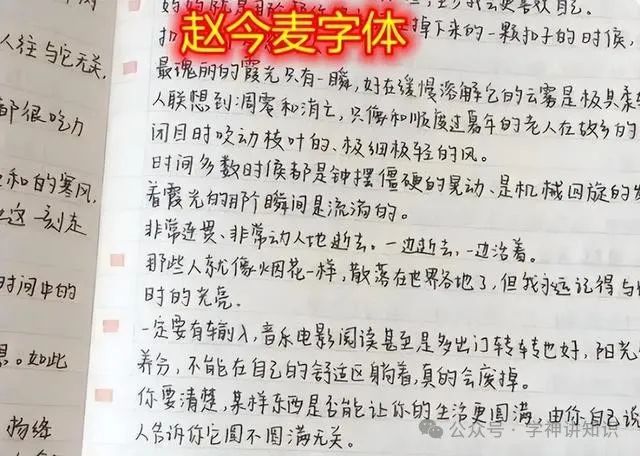 妈妈
赵今麦字体
扣
掉下来的一颗扣子的时候,
最瑰丽的霞光只有一瞬,好在缓慢溶解它的云雾是极具柔
人联想到凋零和消亡,只像和顺度过暮年的老人在故乡的
闭目时吹动枝叶的、极细极轻的风。
时间多数时候都是钟摆僵硬的晃动、是机械回旋的
着霞光的那个瞬间是流淌的。
非常连贯、非常动人地逝去。一边逝去,一边活着。
那些人就像烟花一样,散落在世界各地了,但我永远记得与
时的光亮。
一定要有输入,音乐电影阅读甚至是多出门转转也好,阳光
养分,不能在自己的舒适区躺着,真的会废掉。
你要清楚,某样东西是否能让你的生活更圆满,由你自己说
人告诉你它圆不圆满无关。
人往与它无关,
都很吃力
和的寒风,
这一刻走
时间中的
。如此
杨绛
公众号·学神讲知识